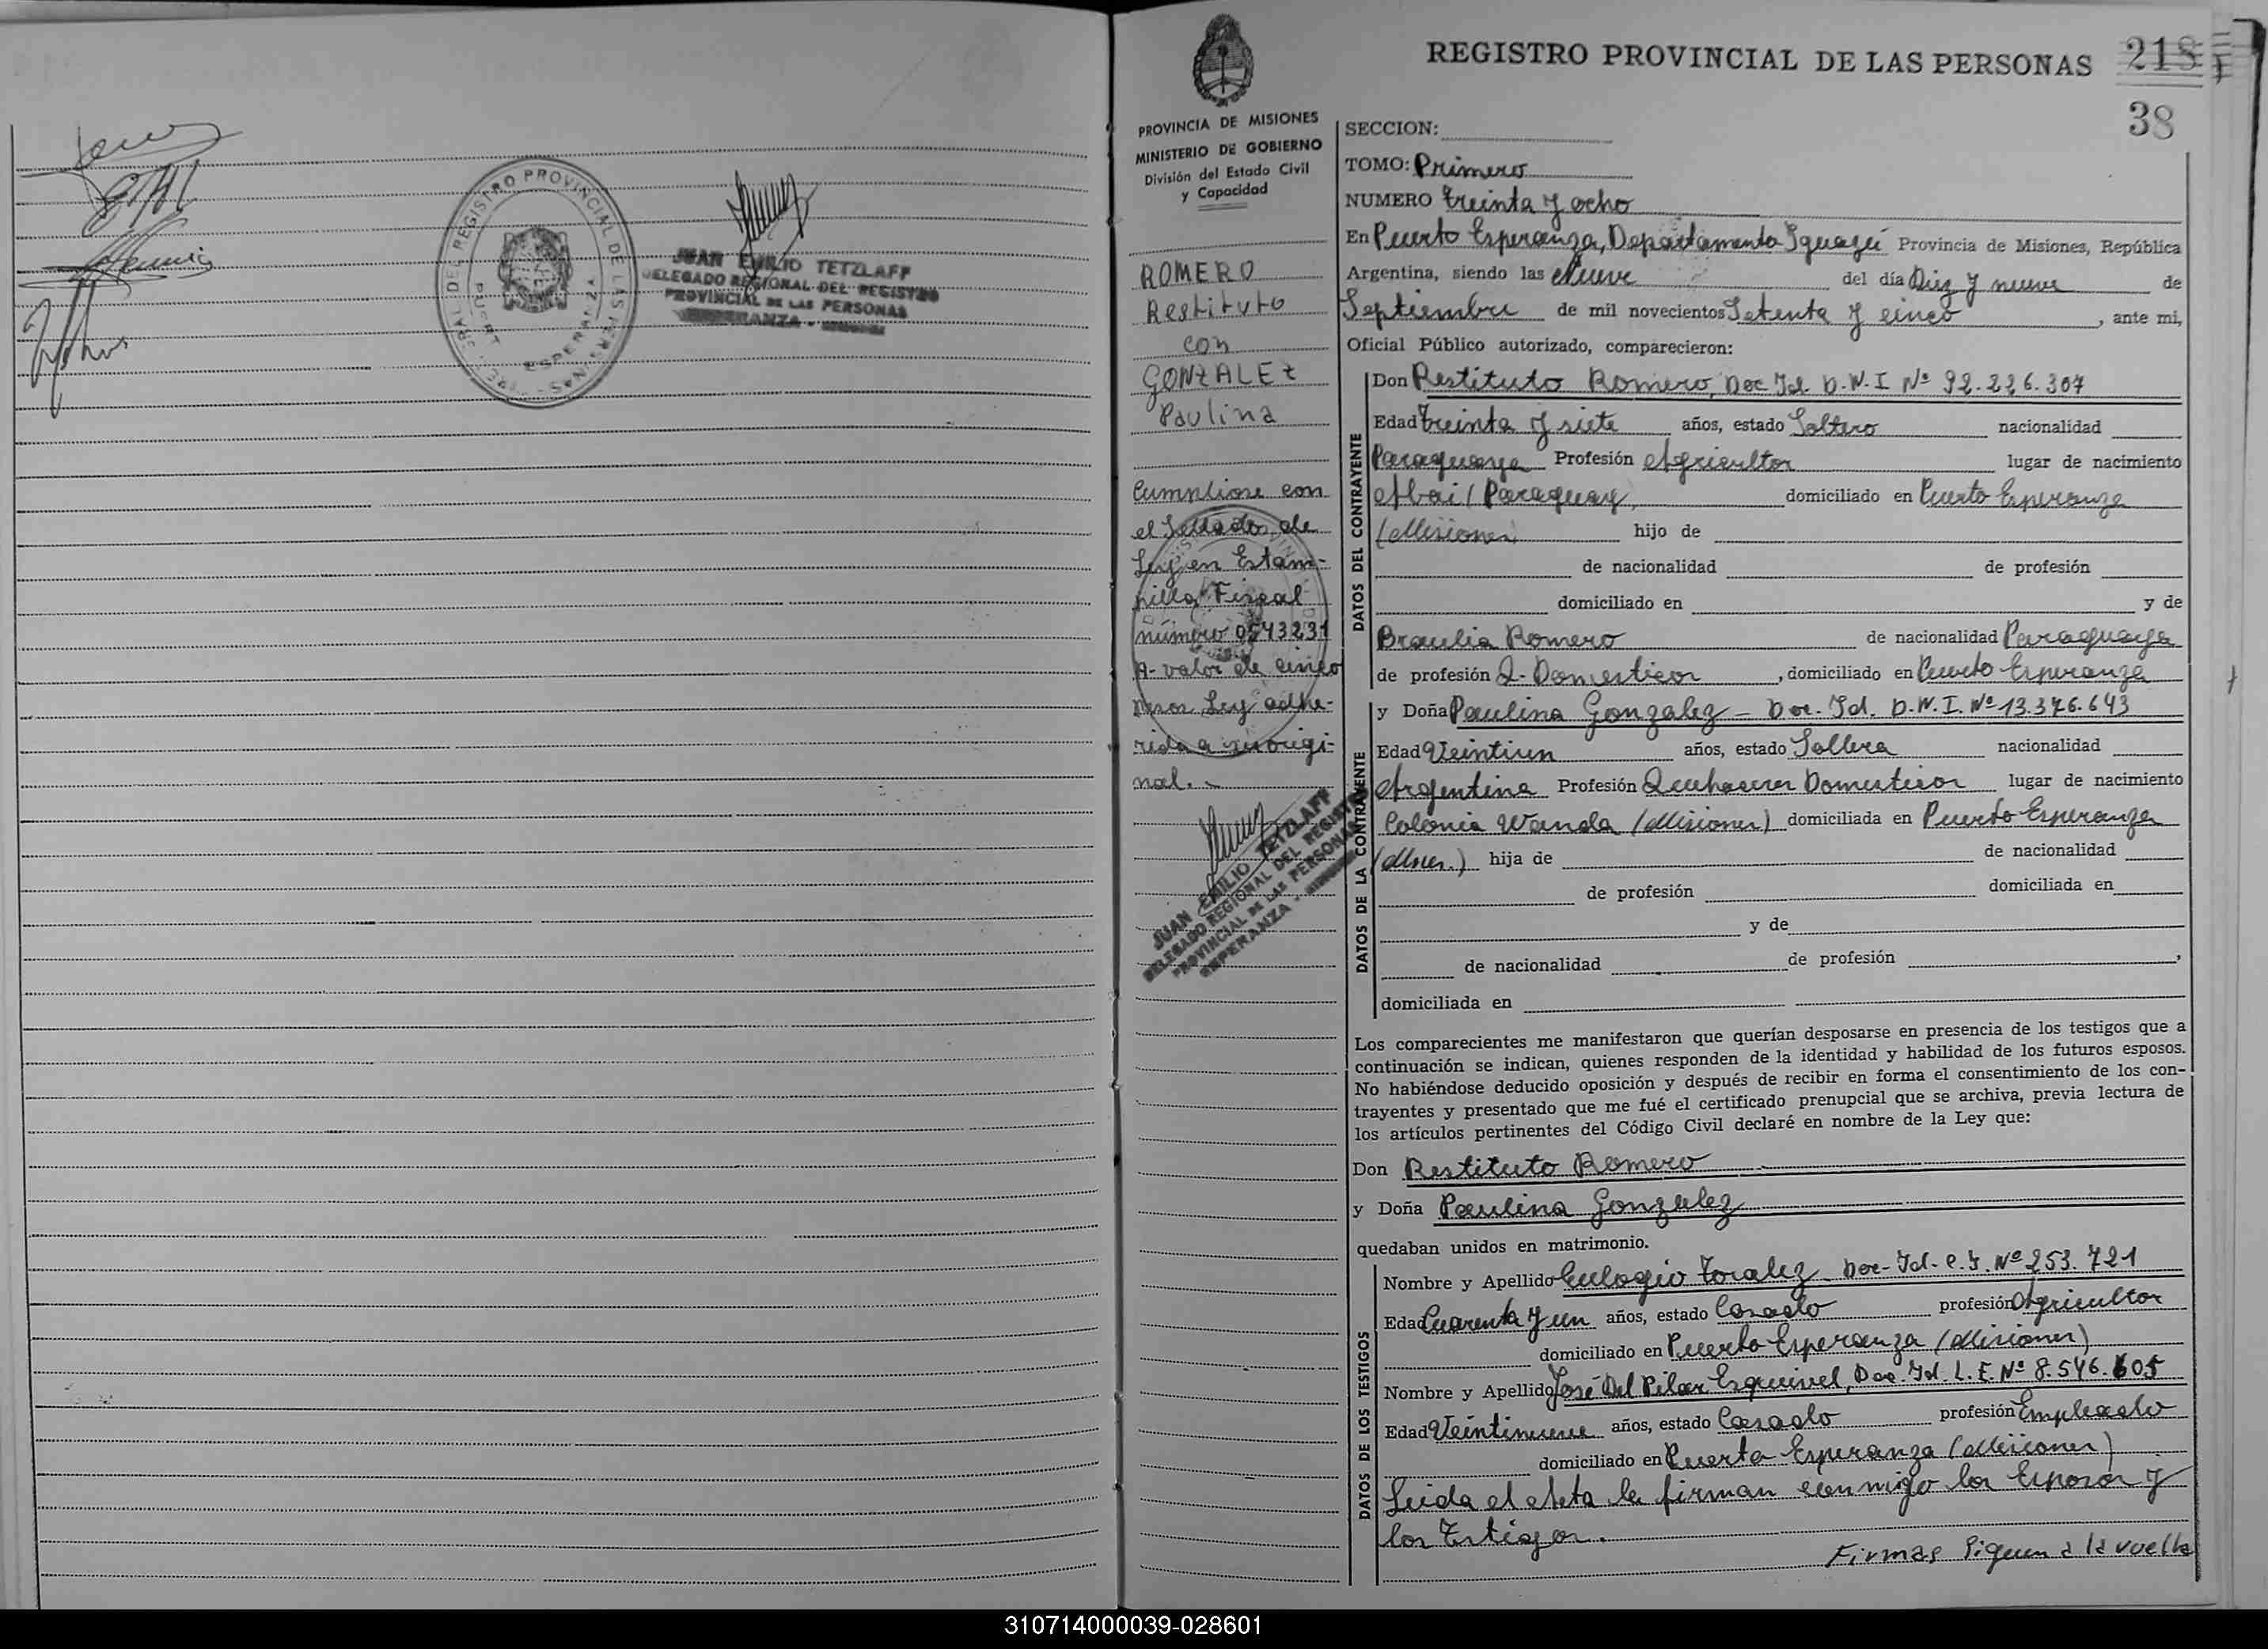 REGISTRO PROVINCIAL DE LAS
PUERTO ESPERANZA
JUAN EMILIO TETZLAFF
DELEGADO REGIONAL DEL REGISTRO
PROVINCIAL DE LAS PERSONAS
ESPERANZA -
REGISTRO PROVINCIAL DE LAS PERSONAS 218
38
PROVINCIA DE MISIONES
MINISTERIO DE GOBIERNO
División del Estado Civil
y Capacidad
ROMERO
Restituto
con
GONZALEZ
Paulina
Cumpliose con
el Sellado de
Ley en Estam-
pilla Fiscal
número 0543231
A- valor de cinco
pesos Ley adhe-
rida a su origi-
nal.-
JUAN EMILIO TETZLAFF
DELEGADO REGIONAL DEL REGISTRO
PROVINCIAL DE LAS PERSONAS
ESPERANZA -
SECCION:
TOMO: Primero
NUMERO treinta y ocho
En Puerto Esperanza, Departamento Iguazú Provincia de Misiones, República
Argentina, siendo las Nueve del día Diez y nueve de
Septiembre de mil novecientos Setenta y cinco, ante mi,
Oficial Público autorizado, comparecieron:
DATOS DEL CONTRAYENTE
Don Restituto Romero, Doc Id. D.N.I Nº 92.226.307
Edad treinta y siete años, estado Soltero nacionalidad
Paraguaya Profesión Agricultor lugar de nacimiento
Abai / Paraguay, domiciliado en Puerto Esperanza
(Misiones) hijo de
de nacionalidad de profesión
domiciliado en y de
Braulia Romero de nacionalidad Paraguaya
de profesión Q- Domesticos, domiciliado en Puerto Esperanza
DATOS DE LA CONTRAYENTE
y Doña Paulina Gonzalez - Doc. Id. D.N.I. Nº 13.376.643
Edad Veintiun años, estado Soltera nacionalidad
Argentina Profesión Quehaceres Domesticos lugar de nacimiento
Colonia Wanda (Misiones) domiciliada en Puerto Esperanza
(Mnes.) hija de de nacionalidad
de profesión domiciliada en
y de
de nacionalidad de profesión ,
domiciliada en
Los comparecientes me manifestaron que querían desposarse en presencia de los testigos que a
continuación se indican, quienes responden de la identidad y habilidad de los futuros esposos.
No habiéndose deducido oposición y después de recibir en forma el consentimiento de los con-
trayentes y presentado que me fué el certificado prenupcial que se archiva, previa lectura de
los artículos pertinentes del Código Civil declaré en nombre de la Ley que:
Don Restituto Romero
y Doña Paulina Gonzalez
quedaban unidos en matrimonio.
DATOS DE LOS TESTIGOS
Nombre y Apellido Eulogio Toralez Doc- Id- C.I. Nº 253.721
Edad Cuarenta y un años, estado Casado profesión Agricultor
domiciliado en Puerto Esperanza (Misiones)
Nombre y Apellido José Del Pilar Esquivel, Doc. Id. L.E. Nº 8.546.605
Edad Veintinueve años, estado Casado profesión Empleado
domiciliado en Puerto Esperanza (Misiones)
Leida el Acta la firman conmigo los Esposos y
los Testigos.
Firmas siguen a la vuelta
310714000039-028601